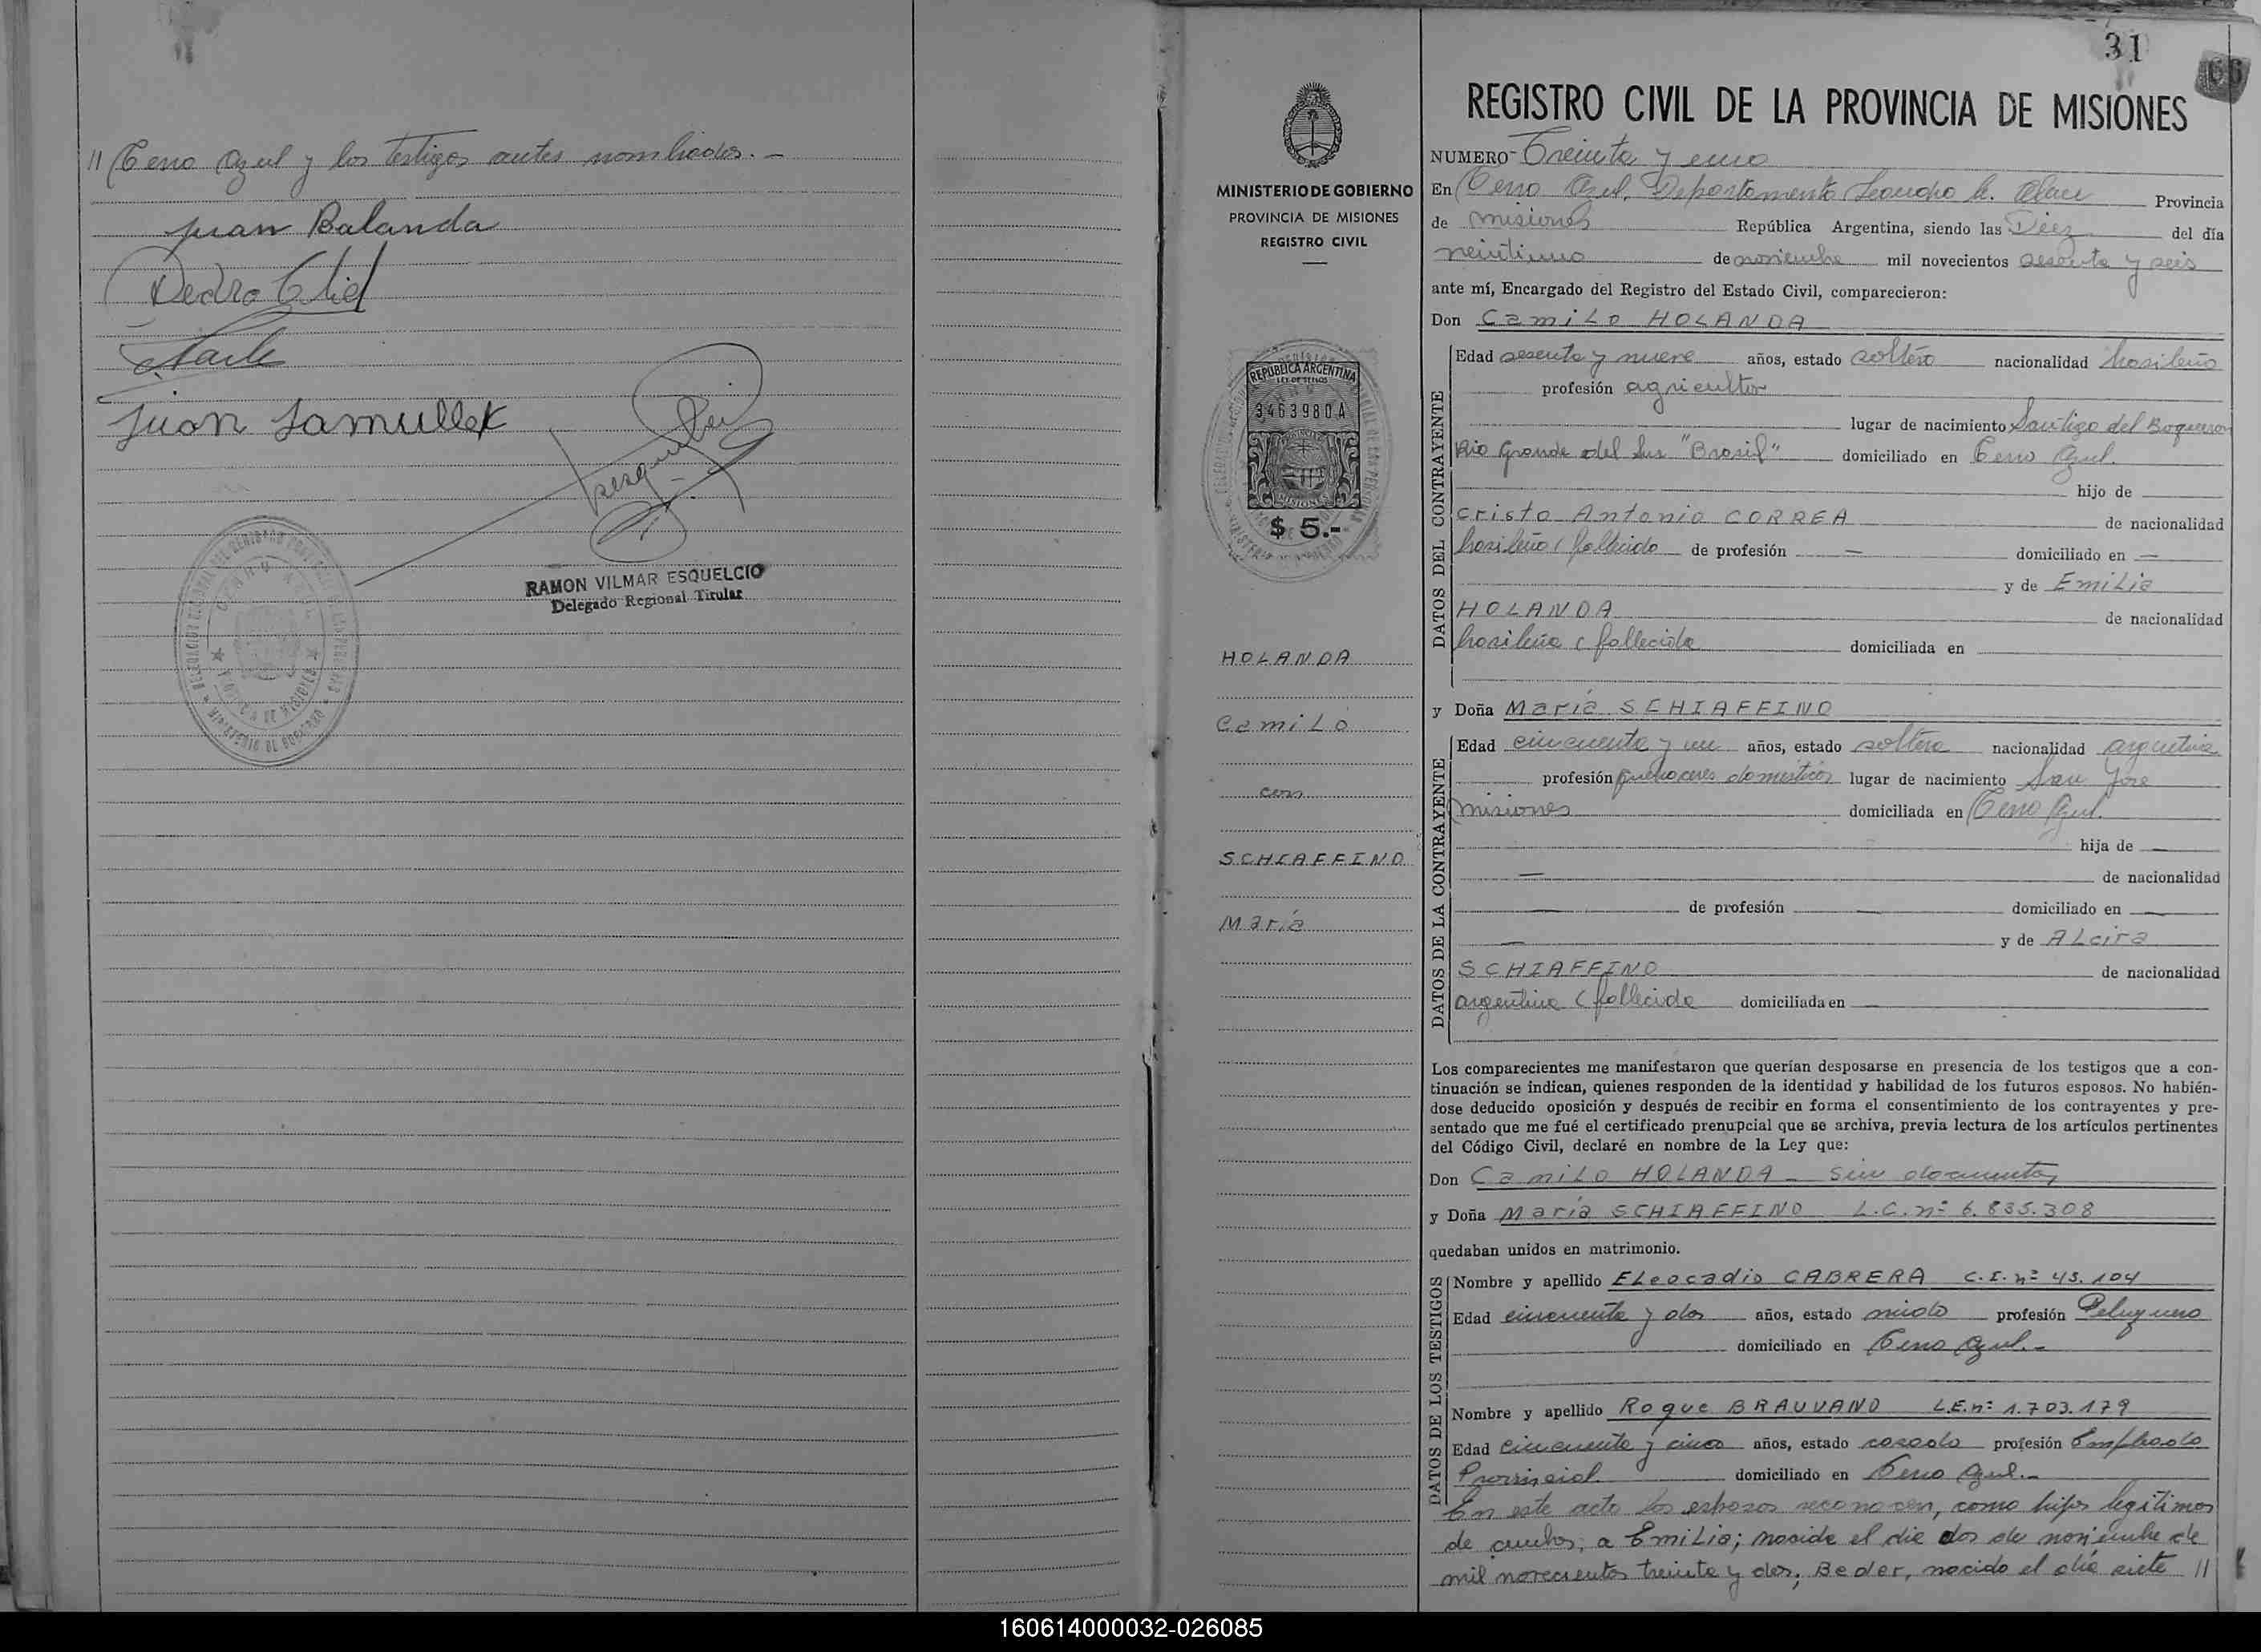 // Cerro Azul y los testigos antes nombrados.-
Juan Balanda
Pedro
Juan Samullek
RAMON VILMAR ESQUELCIO
Delegado Regional Titular
31
66
MINISTERIO DE GOBIERNO
PROVINCIA DE MISIONES
REGISTRO CIVIL
REPUBLICA ARGENTINA
LEY DE SELLOS
3463980A
MISIONES
$ 5.-
HOLANDA
Camilo
con
SCHIAFFINO
María
REGISTRO CIVIL DE LA PROVINCIA DE MISIONES
NUMERO- Treinta y uno
En Cerro Azul, Departamento Leandro N. Alem Provincia
de Misiones República Argentina, siendo las Diez del día
veintiuno de noviembre mil novecientos sesenta y seis
ante mí, Encargado del Registro del Estado Civil, comparecieron:
Don Camilo HOLANDA
DATOS DEL CONTRAYENTE
Edad sesenta y nueve años, estado soltero nacionalidad brasileño
profesión agricultor
lugar de nacimiento Santigo del Boqueron
Rio Grande del Sur "Brasil" domiciliado en Cerro Azul.
hijo de
Cristo Antonio CORREA de nacionalidad
brasileño (fallecido de profesión — domiciliado en —
y de Emilia
HOLANDA de nacionalidad
brasileña (fallecida domiciliada en
y Doña María SCHIAFFINO
DATOS DE LA CONTRAYENTE
Edad cincuenta y un años, estado soltera nacionalidad argentina
profesión quehaceres domesticos lugar de nacimiento San José
Misiones domiciliada en Cerro Azul.
hija de —
— de nacionalidad
— de profesión — domiciliado en —
— y de Alcira
SCHIAFFINO de nacionalidad
argentina (fallecida domiciliada en —
Los comparecientes me manifestaron que querían desposarse en presencia de los testigos que a con-
tinuación se indican, quienes responden de la identidad y habilidad de los futuros esposos. No habién-
dose deducido oposición y después de recibir en forma el consentimiento de los contrayentes y pre-
sentado que me fué el certificado prenupcial que se archiva, previa lectura de los artículos pertinentes
del Código Civil, declaré en nombre de la Ley que:
Don Camilo HOLANDA - sin documento,
y Doña María SCHIAFFINO L.C. nº 6.835.308
quedaban unidos en matrimonio.
DATOS DE LOS TESTIGOS
Nombre y apellido Eleocadio CABRERA C.I. nº 43.104
Edad cincuenta y dos años, estado viudo profesión Peluquero
domiciliado en Cerro Azul.-
Nombre y apellido Roque BRAUVANO L.E. nº 1.703.179
Edad cincuenta y cinco años, estado casado profesión Empleado
Provincial domiciliado en Cerro Azul.-
En este acto los esposos reconocen, como hijos legitimos
de ambos, a Emilia; nacida el dia dos de noviembre de
mil novecientos treinta y dos; Beder, nacido el día siete //
160614000032-026085